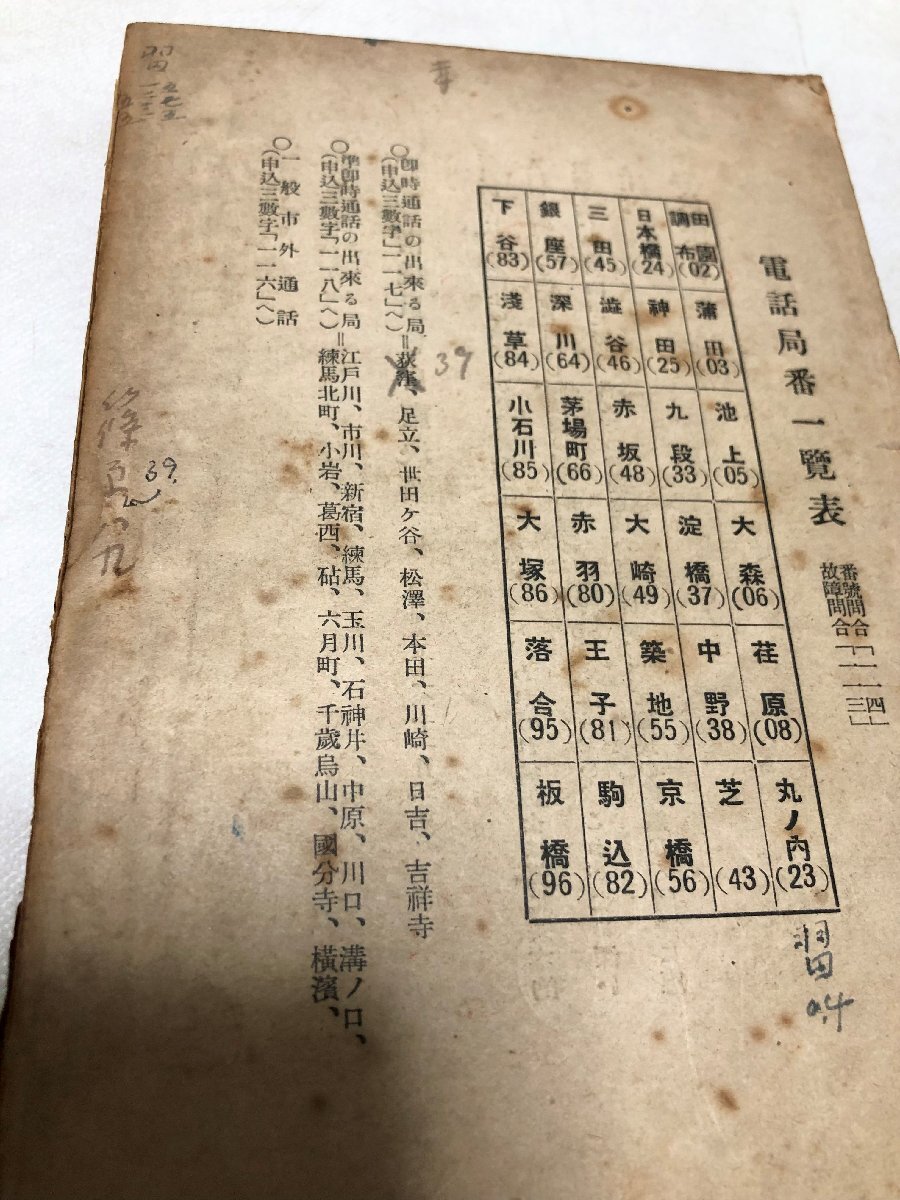 電話局番一覽表
番號問合「一一四」
故障問合「一一三」
田園調布(02)
蒲田(03)
池上(05)
大森(06)
荏原(08)
丸ノ内(23)
日本橋(24)
神田(25)
九段(33)
淀橋(37)
中野(38)
芝(43)
三田(45)
澁谷(46)
赤坂(48)
大崎(49)
築地(55)
京橋(56)
銀座(57)
深川(64)
茅場町(66)
赤羽(80)
王子(81)
駒込(82)
下谷(83)
淺草(84)
小石川(85)
大塚(86)
落合(95)
板橋(96)
〇卽時通話の出來る局=荻窪、足立、世田ケ谷、松澤、本田、川崎、日吉、吉祥寺
(申込三數字「一一七」へ)
39
〇準卽時通話の出來る局=江戸川、市川、新宿、練馬、玉川、石神井、中原、川口、溝ノ口、
(申込三數字「一一八」へ)=練馬北町、小岩、葛西、砧、六月町、千歲烏山、國分寺、橫濱、
〇一般市外通話
(申込三數字「一一六」へ)
39